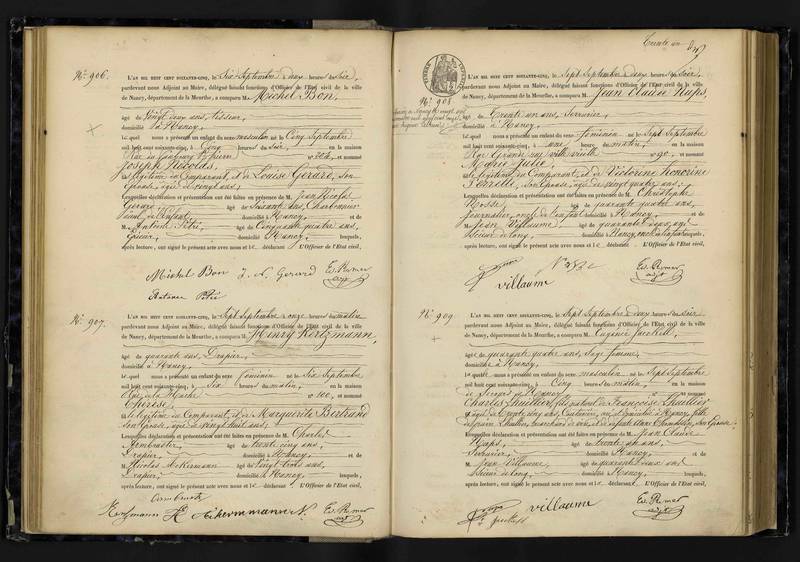 No. 906.
L'AN MIL HUIT CENT SOIXANTE-CINQ, le Six Septembre à onze heures du Soir,
pardevant nous Adjoint au Maire, délégué faisant fonctions d'Officier de l'Etat civil de la ville
de Nancy, département de la Meurthe, a comparu M. Michel Bon,
âgé de Vingt deux ans, Tisseur,
domicilié à Nancy,
lequel nous a présenté un enfant du sexe masculin né le Cinq Septembre
mil huit cent soixante-cinq, à Cinq heures du Soir, en la maison
Rue du faubourg St Pierre et nommé
Joseph Nicolas,
fils légitime du Comparant, et de Louise Gérard, Son
Epouse, âgée de vingt ans,
Lesquelles déclaration et présentation ont été faites en présence de M. Jean Nicolas
Gérard âgé de Soixante ans, Charbonnier
de l'enfant, domicilié à Nancy et de
M. Antoine Pétré, âgé de Cinquante quatre ans,
domicilié à Nancy, lesquels,
après lecture, ont signé le présent acte avec nous et le déclarant. L'Officier de l'Etat civil,
Michel Bon J. N. Gerard Ed. Remer
adjt
Antoine Pétré
No. 907.
L'AN MIL HUIT CENT SOIXANTE-CINQ, le Sept Septembre à onze heures du matin
pardevant nous Adjoint au Maire, délégué faisant fonctions d'Officier de l'Etat civil de la ville
de Nancy, département de la Meurthe, a comparu M. Henry Kertzmann,
âgé de quarante ans, Drapier,
domicilié à Nancy,
lequel nous a présenté un enfant du sexe féminin né le Six Septembre
mil huit cent soixante-cinq, à Six heures du matin, en la maison
Rue de la Hache no 100, et nommé
Thérèse,
fille légitime du Comparant, et de Marguerite Bertrand
son Epouse, âgée de vingt huit ans;
Lesquelles déclaration et présentation ont été faites en présence de M. Charles
Armbruster âgé de trente cinq ans,
Drapier, domicilié à Nancy et de
M. Nicolas Ackermann âgé de Vingt trois ans,
Drapier, domicilié à Nancy, lesquels,
après lecture, ont signé le présent acte avec nous et le déclarant. L'Officier de l'Etat civil,
Armbruster
Kertzmann H Ackermann N. Ed. Remer
adjt
Trente un
No. 908
L'AN MIL HUIT CENT SOIXANTE-CINQ, le Sept Septembre à onze heures du Soir,
pardevant nous Adjoint au Maire, délégué faisant fonctions d'Officier de l'Etat civil de la ville
de Nancy, département de la Meurthe, a comparu M. Jean Claude Raps,
âgé de Trente un ans, Serrurier,
domicilié à Nancy,
lequel nous a présenté un enfant du sexe féminin né le Sept Septembre
mil huit cent soixante-cinq, à une heure du matin, en la maison
Rue Grande rue ville vieille no 90, et nommé
Marie Julie,
fille légitime du Comparant, et de Victorine Honorine
son Epouse, âgée de vingt quatre ans;
Lesquelles déclaration et présentation ont été faites en présence de M. Christophe
âgé de quarante quatre ans,
journalier, oncle de l'enfant domicilié à Nancy, et de
M. Jean Villaume, âgé de quarante deux ans
domicilié à Nancy, lesquels,
après lecture, ont signé le présent acte avec nous et le déclarant. L'Officier de l'Etat civil,
Villaume Ed. Remer
adjt
No. 909.
L'AN MIL HUIT CENT SOIXANTE-CINQ, le Sept Septembre à onze heures du Soir
pardevant nous Adjoint au Maire, délégué faisant fonctions d'Officier de l'Etat civil de la ville
de Nancy, département de la Meurthe, a comparu M. Eugénie Jacktell,
âgée de quarante quatre ans, Sage femme,
domiciliée à Nancy,
laquelle nous a présenté un enfant du sexe masculin né le Sept Septembre
mil huit cent soixante-cinq, à Cinq heures du matin, en la maison
et nommé
Charles Lhuillier, fils naturel de Françoise Lhuillier
âgée de Trente cinq ans, Couturière, domiciliée à Nancy, fille
son Epouse
Lesquelles déclaration et présentation ont été faites en présence de M. Jean Claude
Raps, âgé de trente un ans,
Serrurier, domicilié à Nancy et de
M. Jean Villaume âgé de quarante deux ans
domicilié à Nancy, lesquels,
après lecture, ont signé le présent acte avec nous et le déclarant. L'Officier de l'Etat civil,
Villaume Ed. Remer
adjt